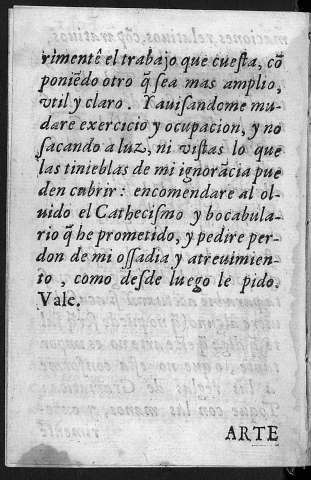 rimentẽ el trabajo que cuesta, cõ
poniẽdo otro q̃ sea mas amplio,
vtil y claro. Y auisandome mu-
dare exercicio y ocupacion, y no
sacando a luz, ni vistas lo que
las tinieblas de mi ignorãcia pue
den cubrir: encomendare al ol-
uido el Cathecismo y bocabula-
rio q̃ he prometido, y pedire per-
don de mi ossadia y atreuimien-
to, como desde luego le pido.
Vale.
ARTE